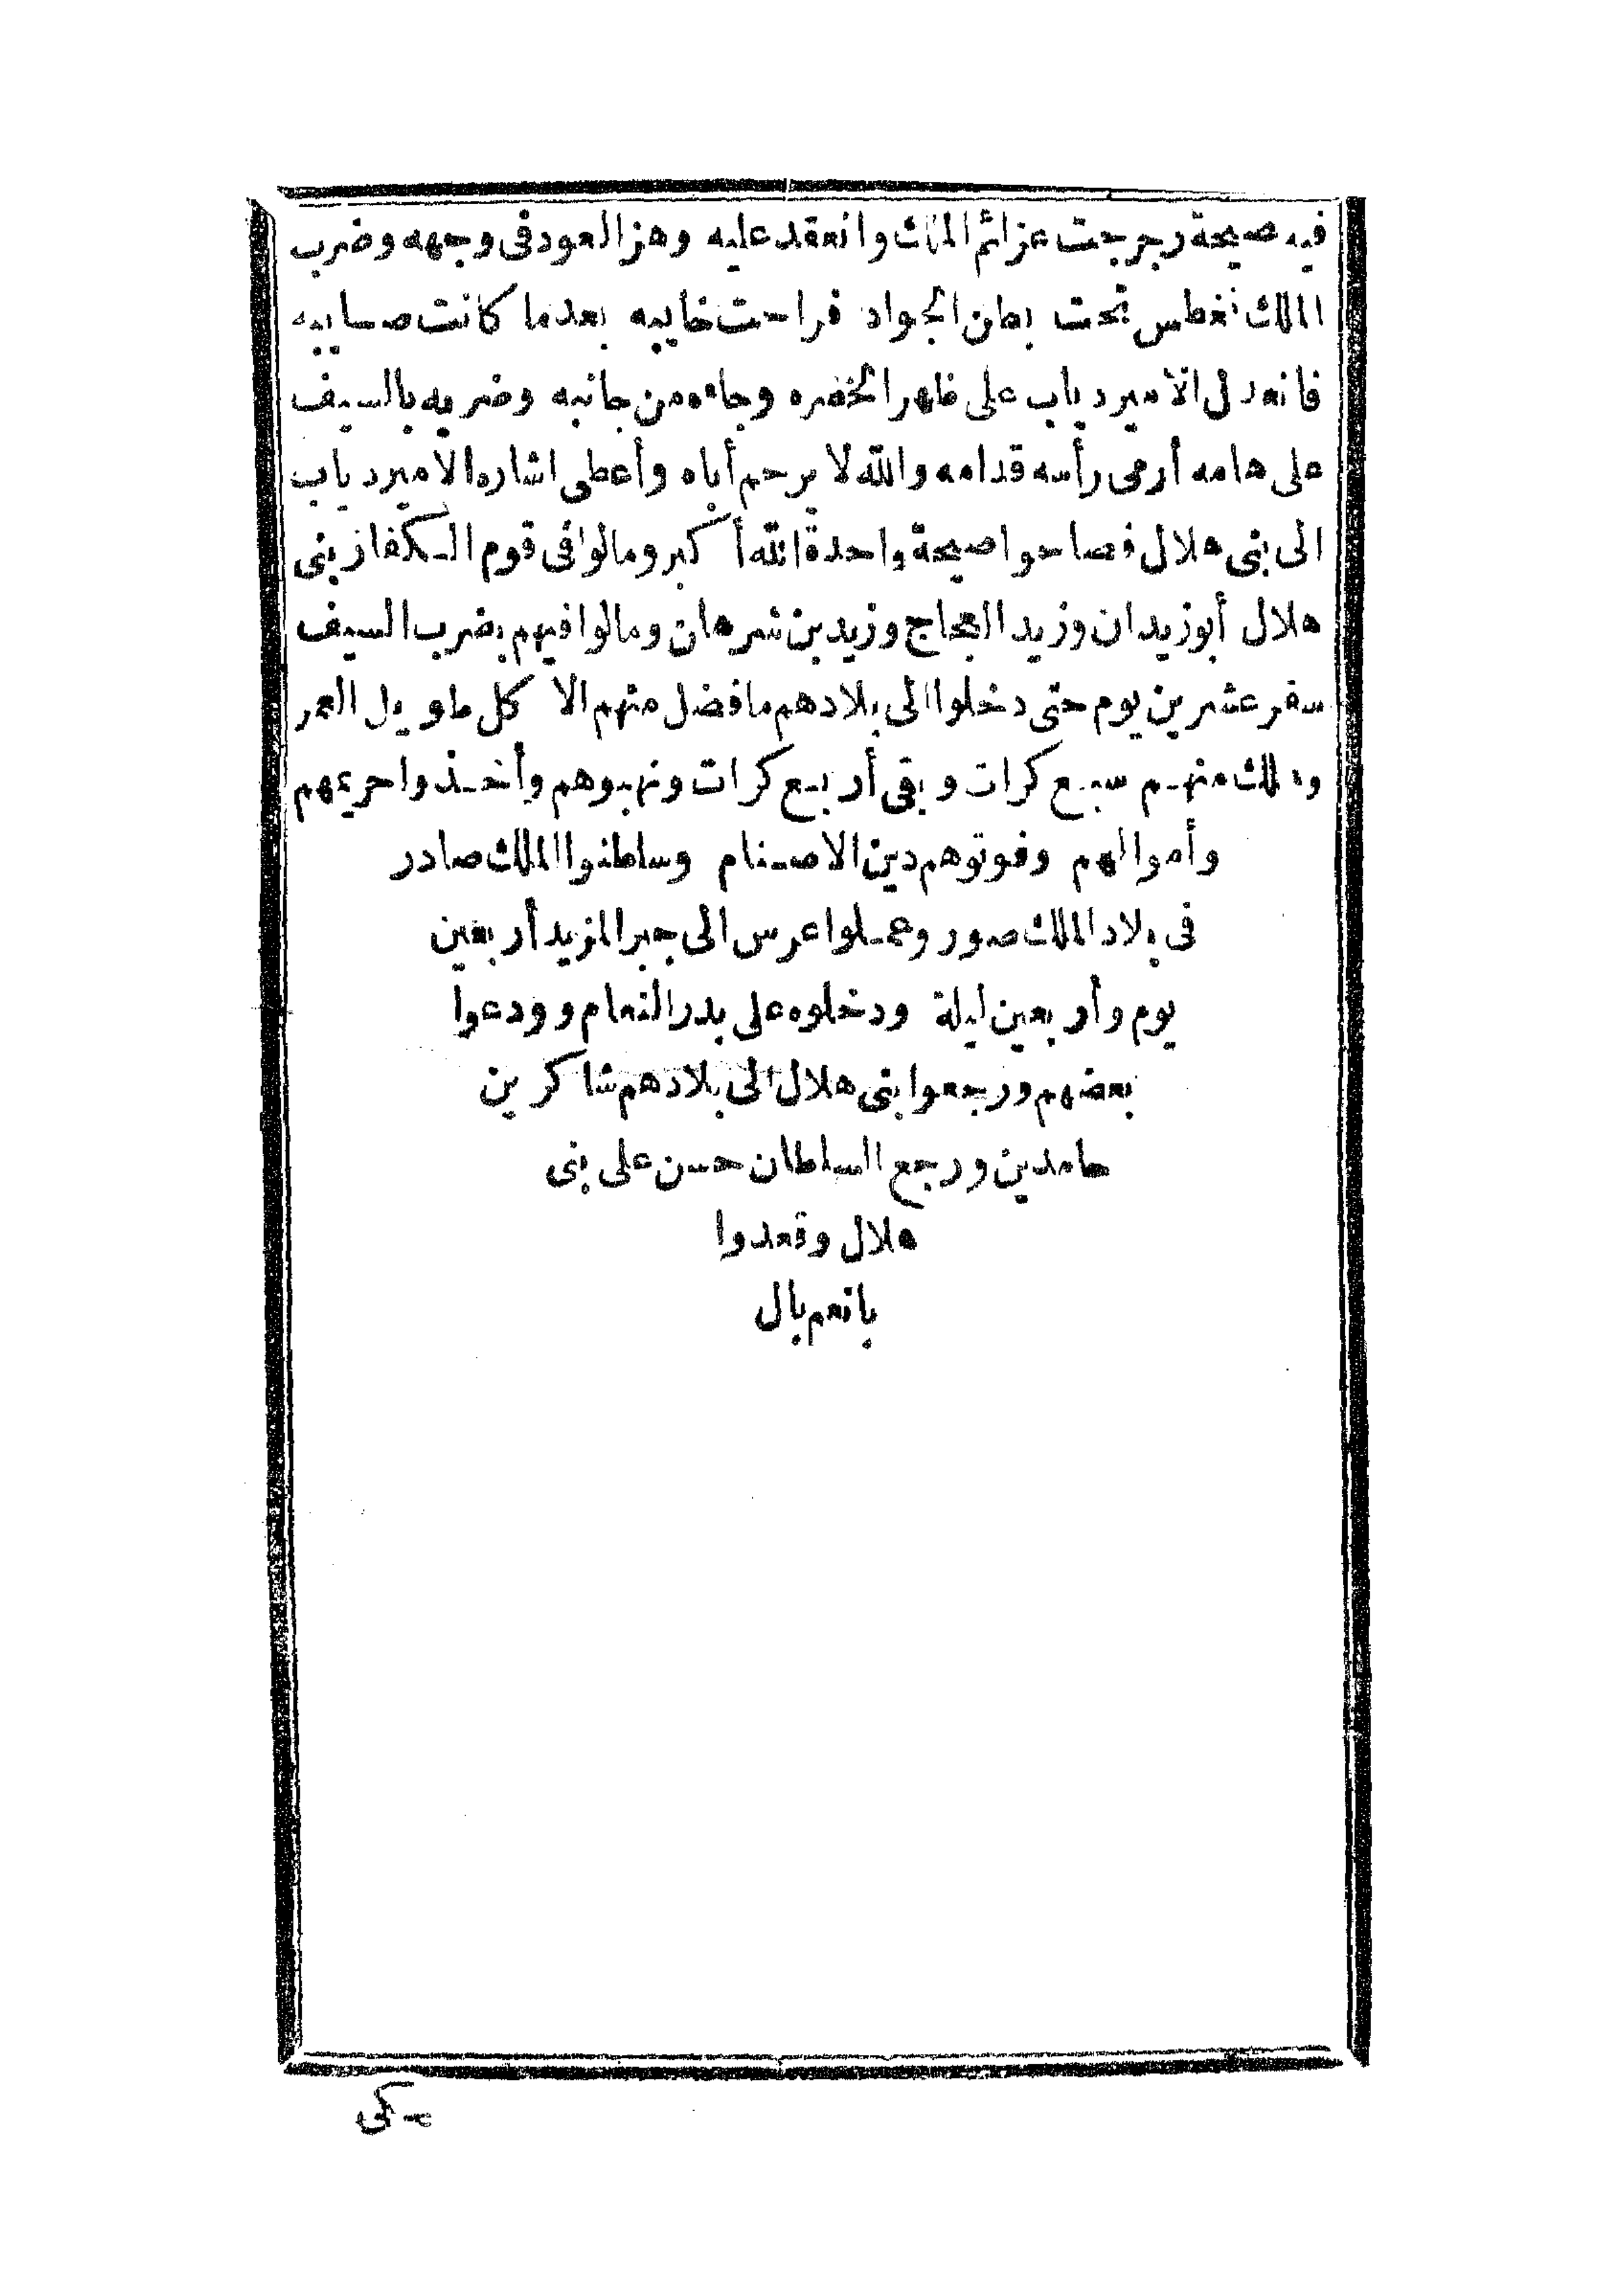 فيه صيحة رجرجت عزائم الملك وانعقد عليه وهز العود فى وجهه وضرب
الملك فغطس تحت بطن الجواد فراحت خايبه بعدما كانت صايبه
فانعدل الامير دياب على ظهر الخضره وجاءه من جانبه وضربه بالسيف
على هامه أرمى رأسه قدامه والله لا يرحم أباه وأعطى اشاره الامير دياب
الى بنى هلال فصاحوا صيحة واحدة الله أكبر ومالوا فى قوم الكفار بنى
هلال أبو زيدان وزيد العجاج وزيد بن شرهان ومالوا فيهم بضرب السيف
سفر عشرين يوم حتى دخلوا الى بلادهم ما فضل منهم الا كل طويل العمر
وهلك منهم سبع كرات وبقى أربع كرات ونهبوهم وأخذوا حريمهم
وأموالهم وفوتوهم دين الاصنام وسلطنوا الملك صادر
فى بلاد الملك صور وعملوا عرس الى جبر المزيد أربعين
يوم وأربعين ليلة ودخلوه على بدر النعام وودعوا
بعضهم ورجعوا بنى هلال الى بلادهم شاكرين
حامدين ورجع السلطان حسن على بنى
هلال وقعدوا
بانعم بال